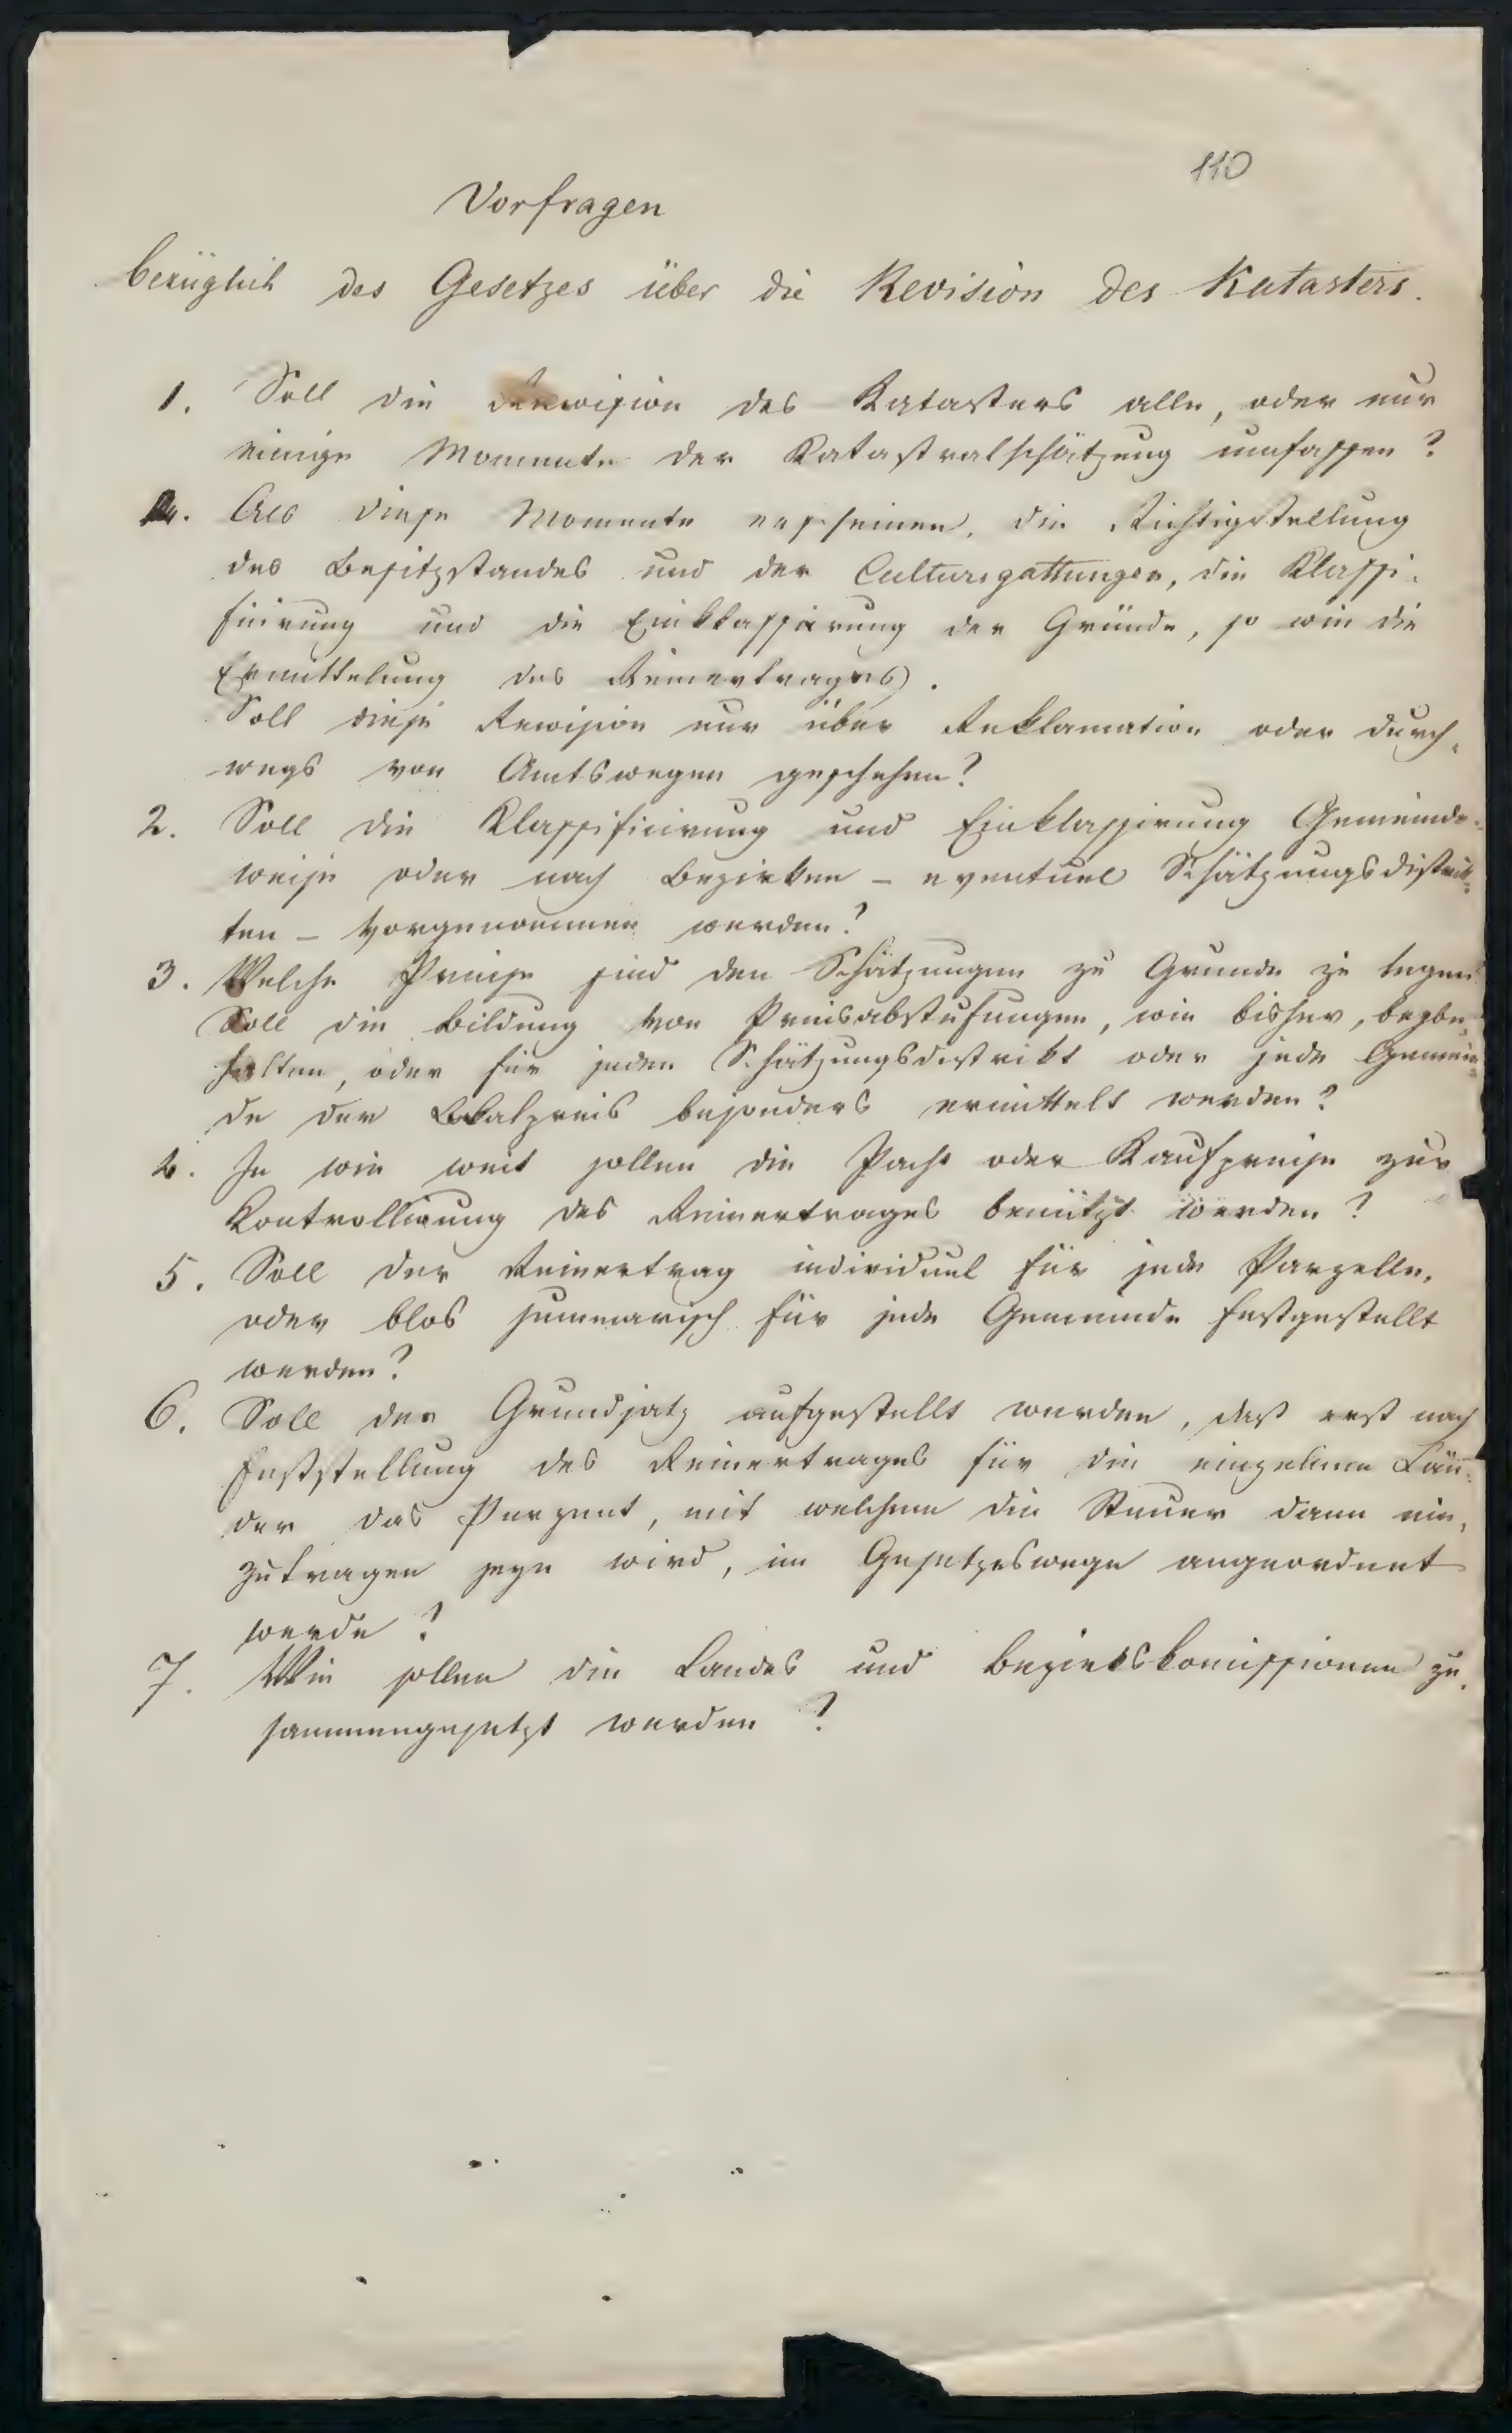 110
Vorfragen
bezüglich des Gesetzes über die Revision des Katasters.
1. Soll die Revision des Katasters alle, oder nur
einige Momente der Katastralschätzung umfassen?
Als diese Momente erscheinen, die Richtigstellung
des Besitzstandes und der Culturgattungen, die Klassi-
fizirung und die Einklassirung der Gründe, so wie die
Ermittelung des Reinertrages.
Soll diese Revision nur über Reklamation oder durch-
wegs von Amtswegen geschehen?
2. Soll die Klassifizirung und Einklassirung Gemeinde-
weise oder nach Bezirken – eventuel Schätzungsdistrik-
ten – vorgenommen werden?
3. Welche Preise sind den Schätzungen zu Grunde zu legen?
Soll die Bildung von Preisabstufungen, wie bisher, beybe-
halten, oder für jeden Schätzungsdistrikt oder jede Gemein-
de der Lokalpreis besonders ermittelt werden?
4. In wie weit sollen die Pacht oder Kaufpreise zur
Kontrollirung des Reinertrages benützt werden?
5. Soll der Reinertrag individuel für jede Parzelle,
oder blos summarisch für jede Gemeinde festgestellt
werden?
6. Soll der Grundsatz aufgestellt werden, daß erst nach
Feststellung des Reinertrages für die einzelnen Län-
der das Perzent, mit welchem die Steuer dann ein-
zutragen seyn wird, im Gesetzeswege angeordnet
werde?
7. Wie sollen die Landes und Bezirkskomissionen zu-
sammengesetzt werden?